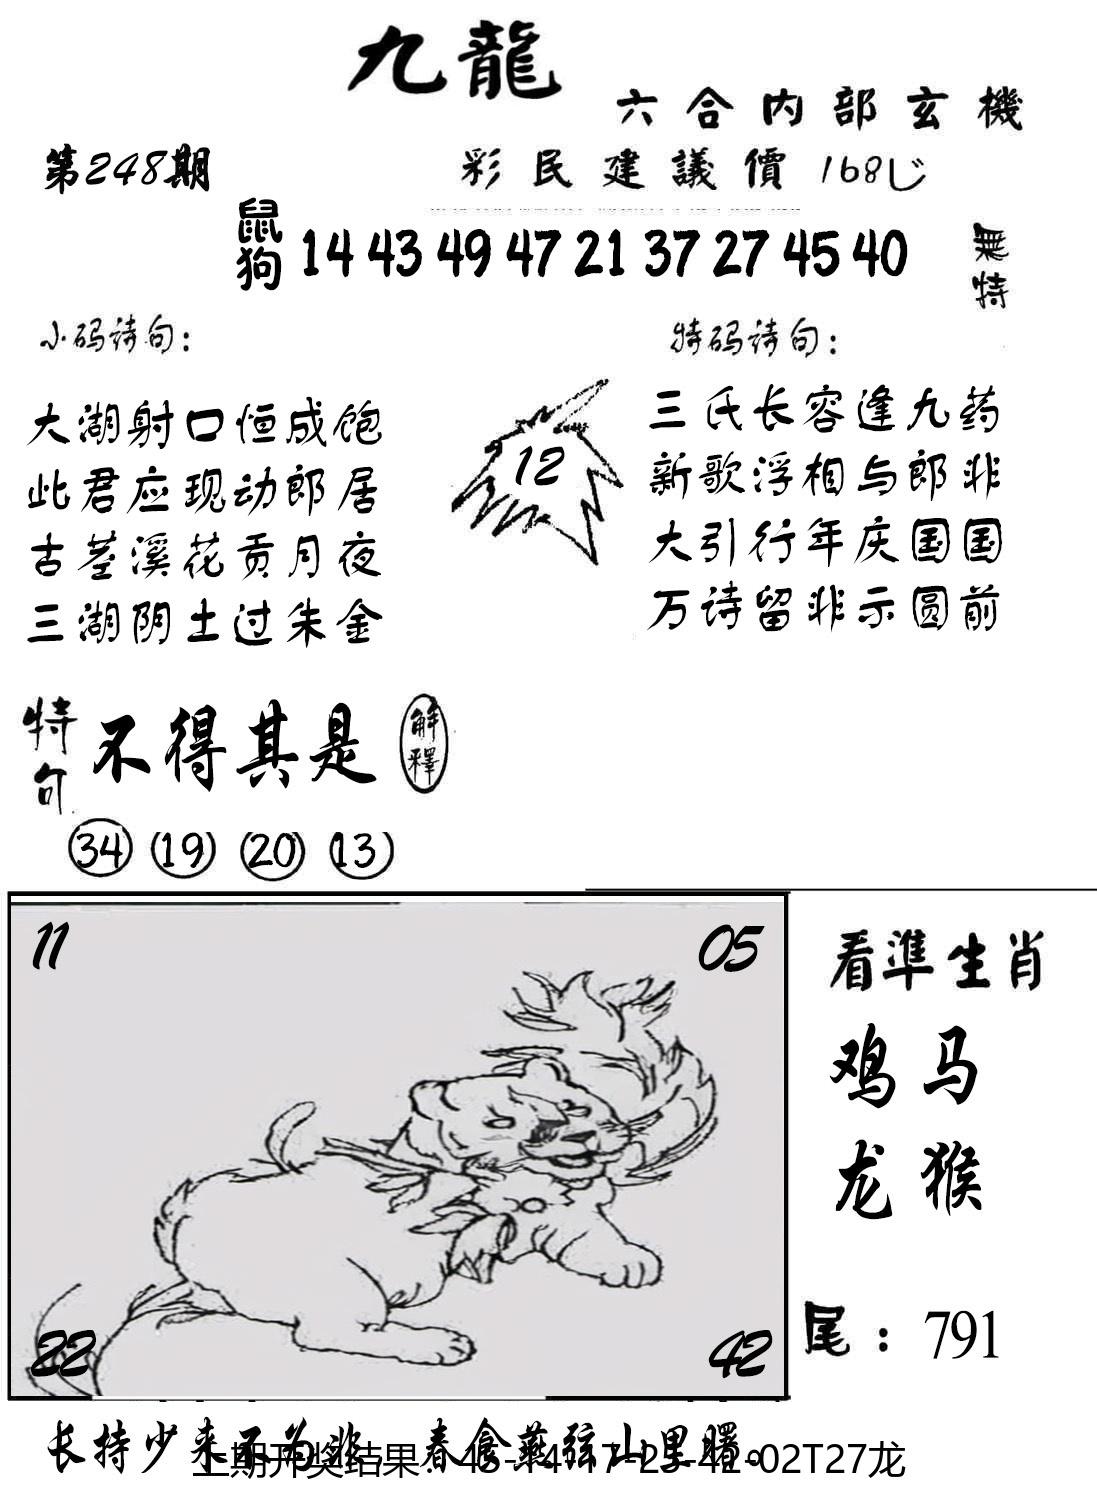 九龍
六合内部玄機
第248期
彩民建議價 168
鼠狗 14 43 49 47 21 37 27 45 40
無特
小码诗句：
大湖射口恒成饱
此君应现动郎居
古茎溪花贡月夜
三湖阴土过朱金
12
特码诗句：
三氏长容逢九药
新歌浮相与郎非
大引行年庆国国
万诗留非示圆前
特句
不得其是
解釋
34 19 20 13
11
05
22
42
看準生肖
鸡马
龙猴
尾：791
长持少来不为非 春食燕弦山里曙。
上期开奖结果：
02T27龙